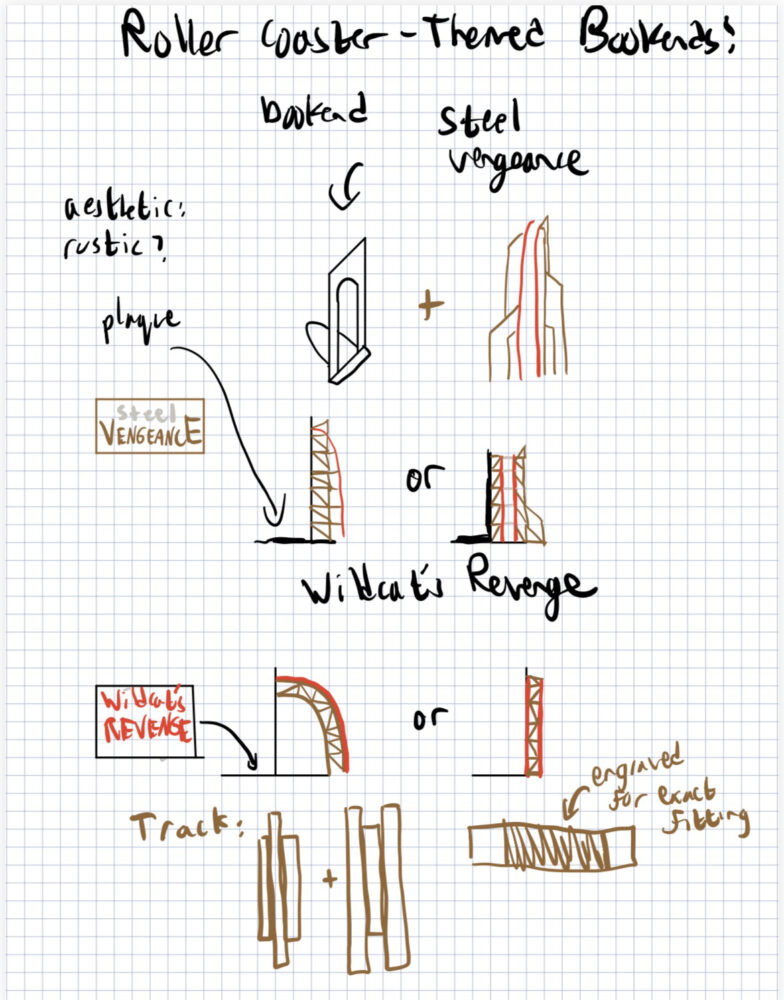 Roller Coaster-Themed Bookends!
bookend
Steel
vengeance
aesthetic:
rustic?
plaque
Steel
VENGEANCE
or
Wildcat's Revenge
Wildcat's
REVENGE
or
engraved
for exact
fitting
Track: